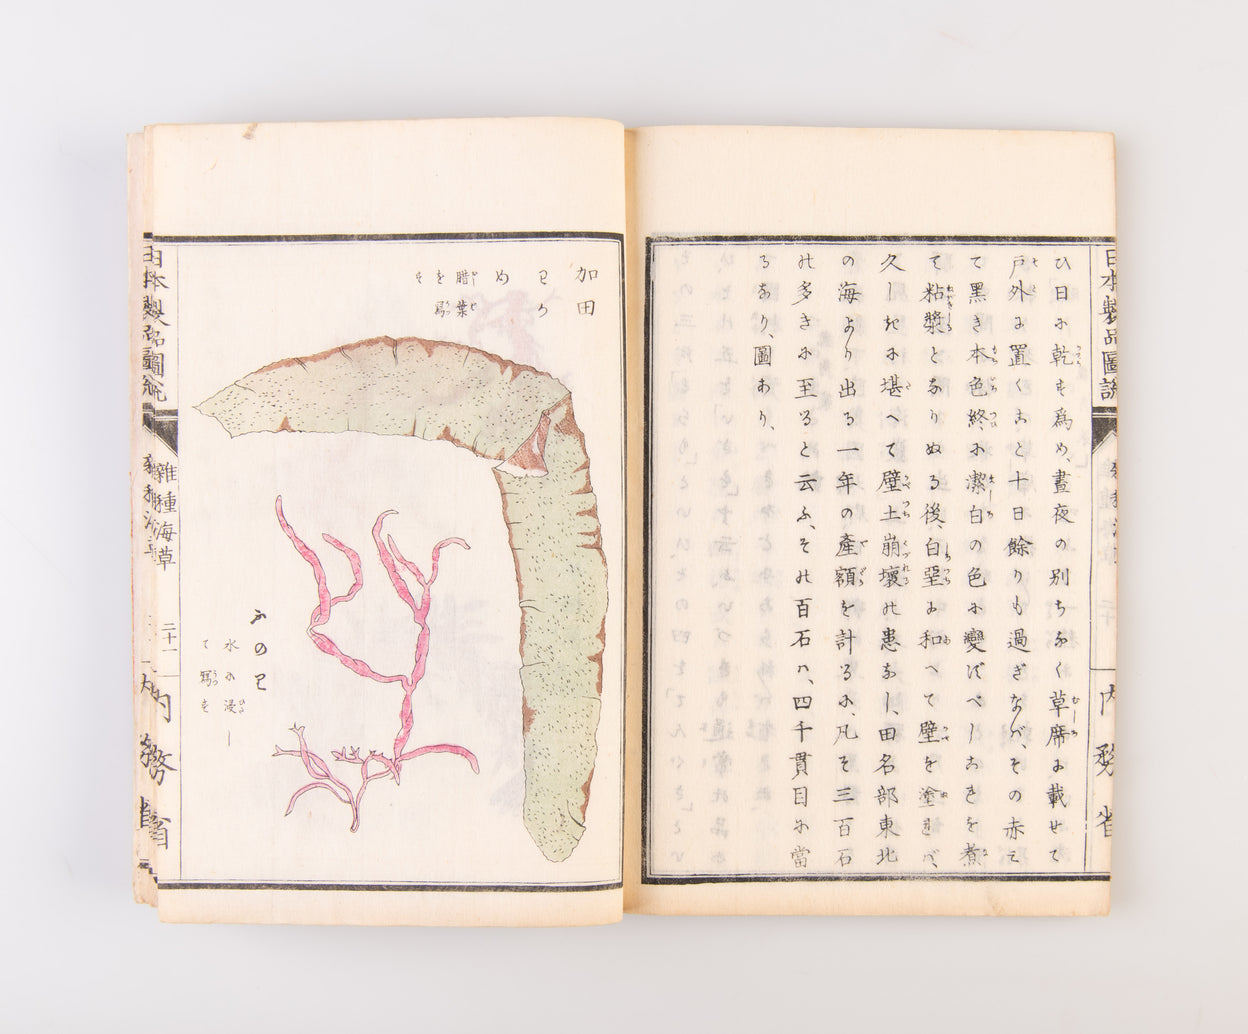 日本製品圖説
内務省
ひ日に乾す爲め、晝夜の別ちなく草席に載せて
戸外に置くこと十日餘りも過ぎなば、その赤に
て黒き本色終に潔白の色に變ずべしこれを煮
て粘漿となりぬる後白堊に和へて壁を塗れば、
久しきに堪へて壁土崩壞の患なし、田名部東北
の海より出る一年の產額を計るに、凡そ三百石
の多きに至ると云ふ、その百石ハ、四千貫目に當
るなり、圖あり、
加田
わか
め
腊葉
を寫
す
ふのり
水に浸し
て寫す
日本製品圖説
雜種海草
二十一
内務省